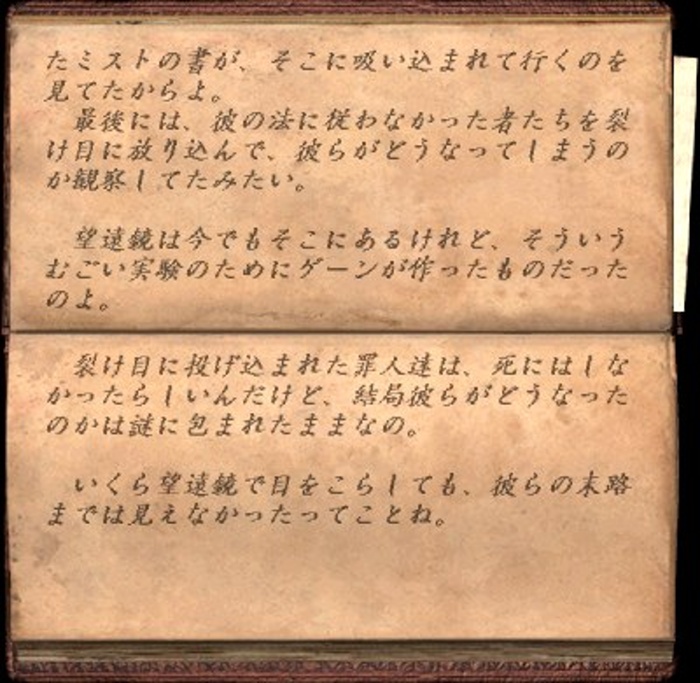 たミストの書が、そこに吸い込まれて行くのを
見てたからよ。
最後には、彼の法に従わなかった者たちを裂
け目に放り込んで、彼らがどうなってしまうの
か観察してたみたい。
望遠鏡は今でもそこにあるけれど、そういう
むごい実験のためにゲーンが作ったものだった
のよ。
裂け目に投げ込まれた罪人達は、死にはしな
かったらしいんだけど、結局彼らがどうなった
のかは謎に包まれたままなの。
いくら望遠鏡で目をこらしても、彼らの末路
までは見えなかったってことね。